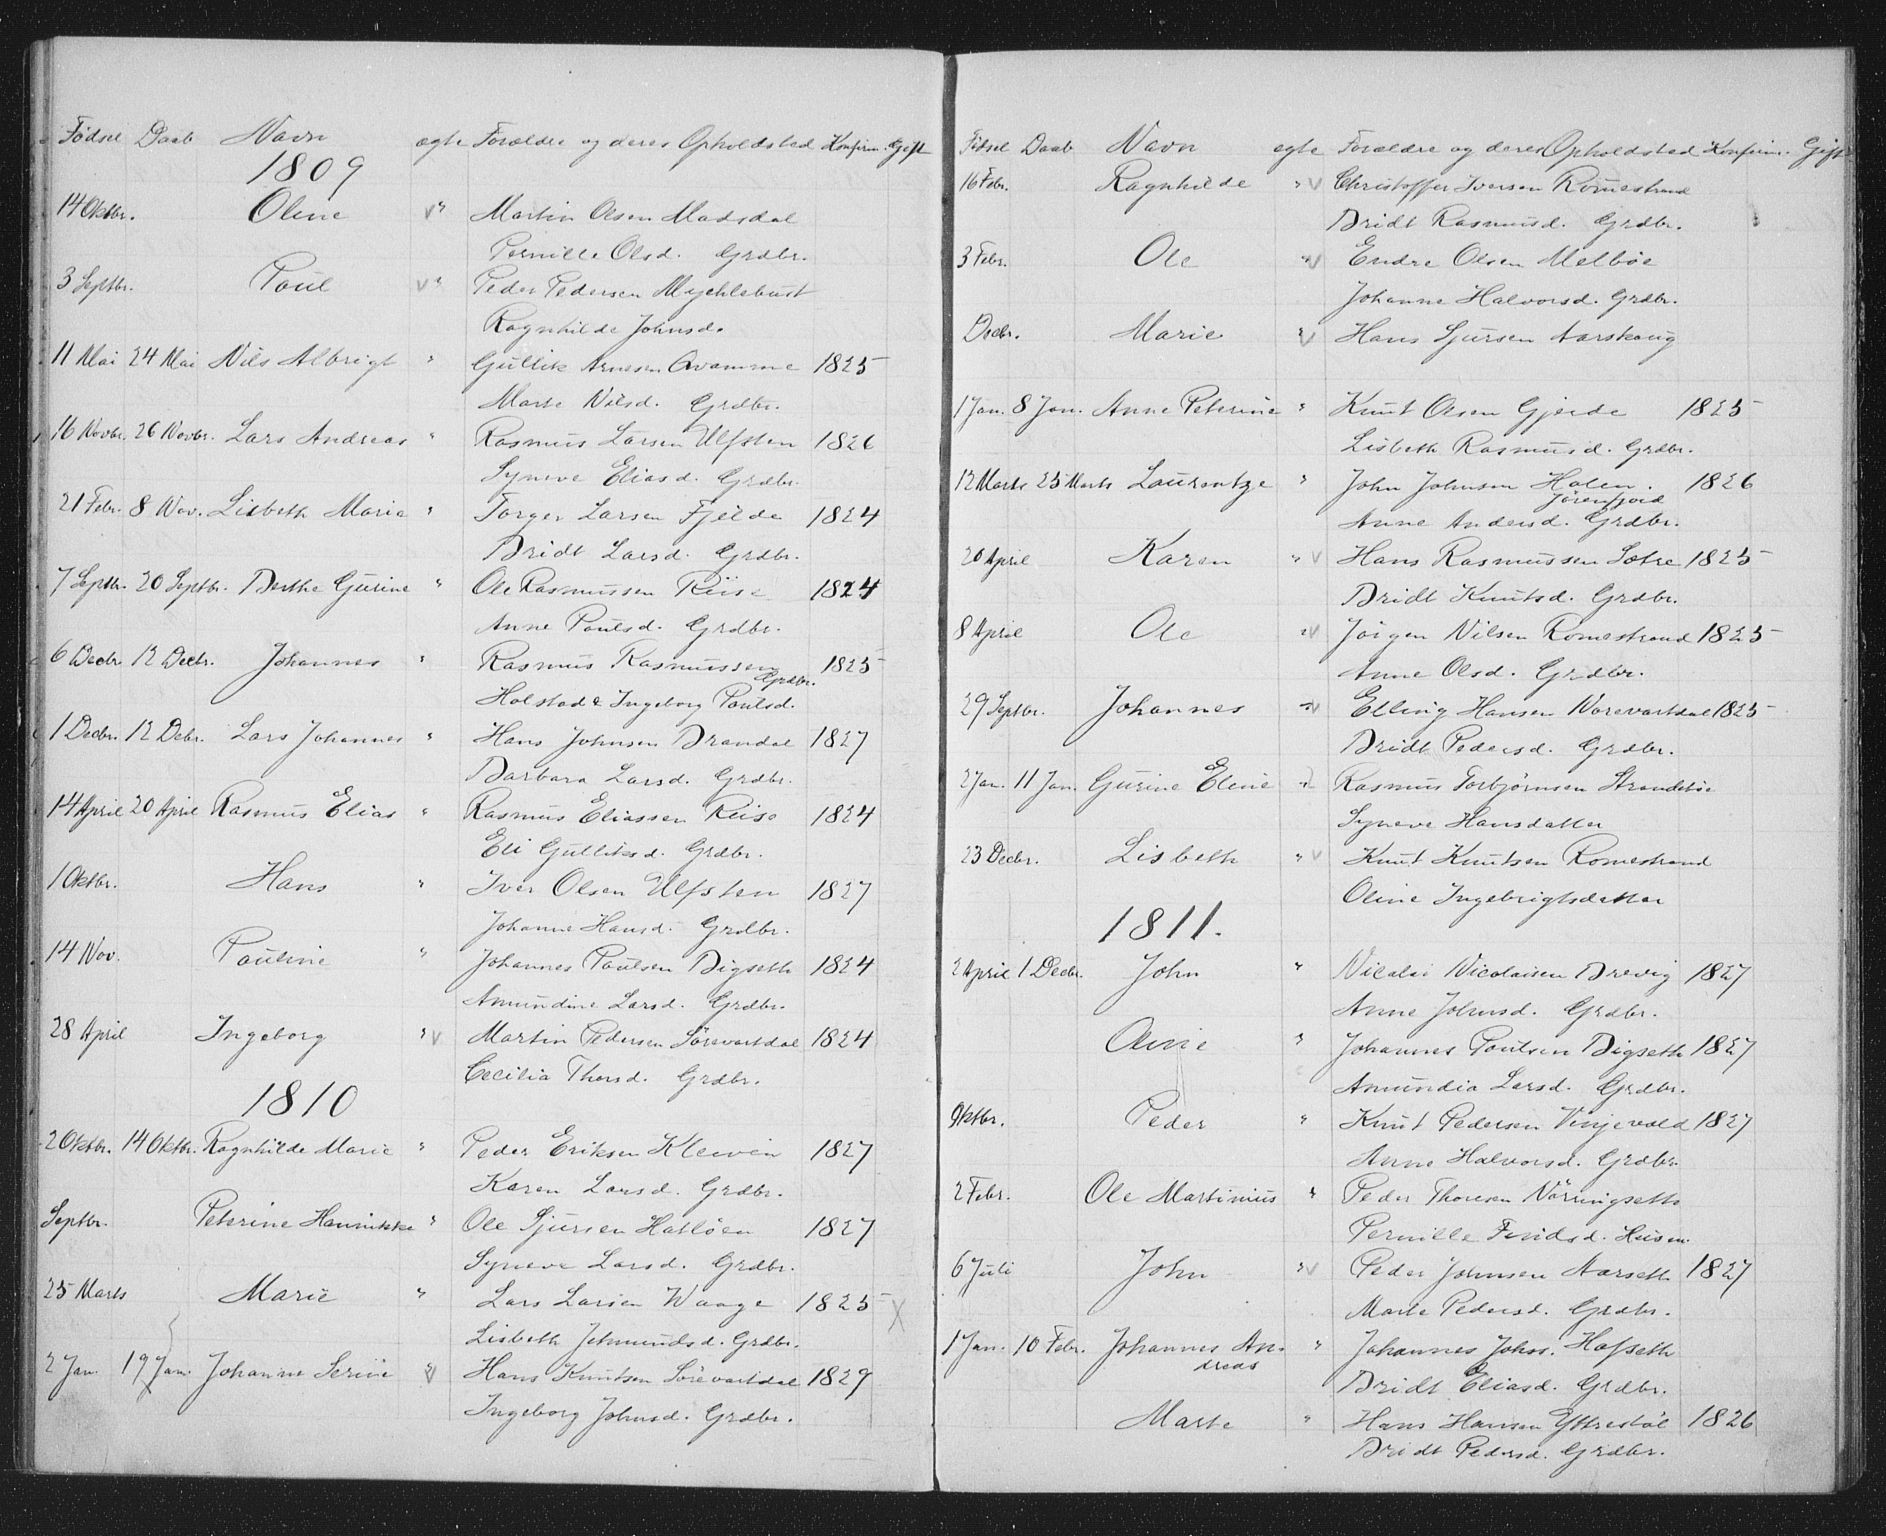 Fødsel Daab Navn ægte Forældre og deres Opholdsted Konfirm. Gift
1809
14 Oktbr. Oline " Martin Olsen Madsdal
Pernille Olsd. Grdbr.
3 Septbr. Poul " Peder Pedersen Mychlebust
Ragnhilde Johnsd.
11 Mai 24 Mai Nils Albrigt " Gullik Arnesen Qvamme 1825
Marte Nilsd. Grdbr.
16 Novbr. 26 Novbr. Lars Andreas " Rasmus Larsen Ulfsten 1826
Syneve Eliasd. Grdbr.
21 Febr. 8 Nov. Lisbeth Marie " Torger Larsen Fjelde 1824
Bridt Larsd. Grdbr.
7 Septbr. 20 Septbr. Berthe Gurine " Ole Rasmussen Riise 1824
Anne Poulsd. Grdbr.
6 Decbr. 12 Decbr. Johannes " Rasmus Rasmussen 1825
Grdbr.
Holstad & Ingeborg Poulsd.
1 Decbr. 12 Debr. Lars Johannes " Hans Johnsen Brandal 1827
Barbara Larsd. Grdbr.
14 April 20 April Rasmus Elias " Rasmus Eliassen Riise 1824
Eli Gulliksd. Grdbr.
1 Oktbr. Hans " Iver Olsen Ulfsten 1827
Johanne Hansd. Grdbr.
14 Nov. Pauline " Johannes Poulsen Bigseth 1824
Amundine Larsd. Grdbr.
28 April Ingeborg " Martin Pedersen Sørevartdal 1824
Cecilia Thorsd. Grdbr.
1810
2 Oktbr. 14 Oktbr. Ragnhilde Marie " Peder Eriksen Kleeven 1827
Karen Larsd. Grdbr.
Septbr. Peterine Hannikke " Ole Sjursen Hatløen 1827
Syneve Larsd. Grdbr.
25 Marts Marie " Lars Larsen Waage 1825 X
Lisbeth Jetmundsd. Grdbr.
2 Jan. 19 Jan. Johanne Serine " Hans Knutsen Sørevartdal 1829
Ingeborg Johnsd. Grdbr.
Fødsel Daab Navn ægte Forældre og deres Opholdsted Konfirm. Gift
16 Febr. Ragnhilde " Christoffer Iversen Romestrand
Bridt Rasmusd. Grdbr.
3 Febr. Ole " Endre Olsen Melbøe
Johanne Halvorsd. Grdbr.
Decbr. Marie " Hans Sjursen Aarskoug
1 Jan. 8 Jan. Anne Peterine " Knut Olsen Gjerde 1825
Lisbeth Rasmusd. Grdbr.
12 Marts 25 Marts Laurentze " John Johnsen Holen. 1826
Jørenfjord
Anne Andersd. Grdbr.
20 April Karen " Hans Rasmussen Sætre 1825
Bridt Knutsd. Grdbr.
8 April Ole " Jørgen Nilsen Romestrand 1825
Anne Olsd. Grdbr.
29 Septbr. Johannes " Elling Hansen Norevartdal 1825
Bridt Pedersd. Grdbr.
2 Jan. 11 Jan. Gurine Eline " Rasmus Torbjørnsen Strandebøe
Syneve Hansdatter
23 Decbr. Lisbeth " Knut Knutsen Romestrand
Oline Ingebrigtsdatter
1811.
2 April 1 Decbr. John " Nicolai Nicolaisen Brevig 1827
Anne Johnsd. Grdbr.
Oline " Johannes Poulsen Bigseth 1827
Amundia Larsd. Grdbr.
Oktbr. Peder " Knut Pedersen Vinjevold 1827
Anne Halvorsd. Grdbr.
2 Febr. Ole Martinius " Peder Thoresen Nørringseth
Pernille Findsd. Husm.
6 Juli John " Peder Johnsen Aarseth 1827
Marte Pedersd. Grdbr.
1 Jan. 10 Febr. Johannes An- " Johannes Johns. Hofseth
dreas
Bridt Eliasd. Grdbr.
Marte " Hans Hansen Yttrestøl 1826
Bridt Pedersd. Grdbr.